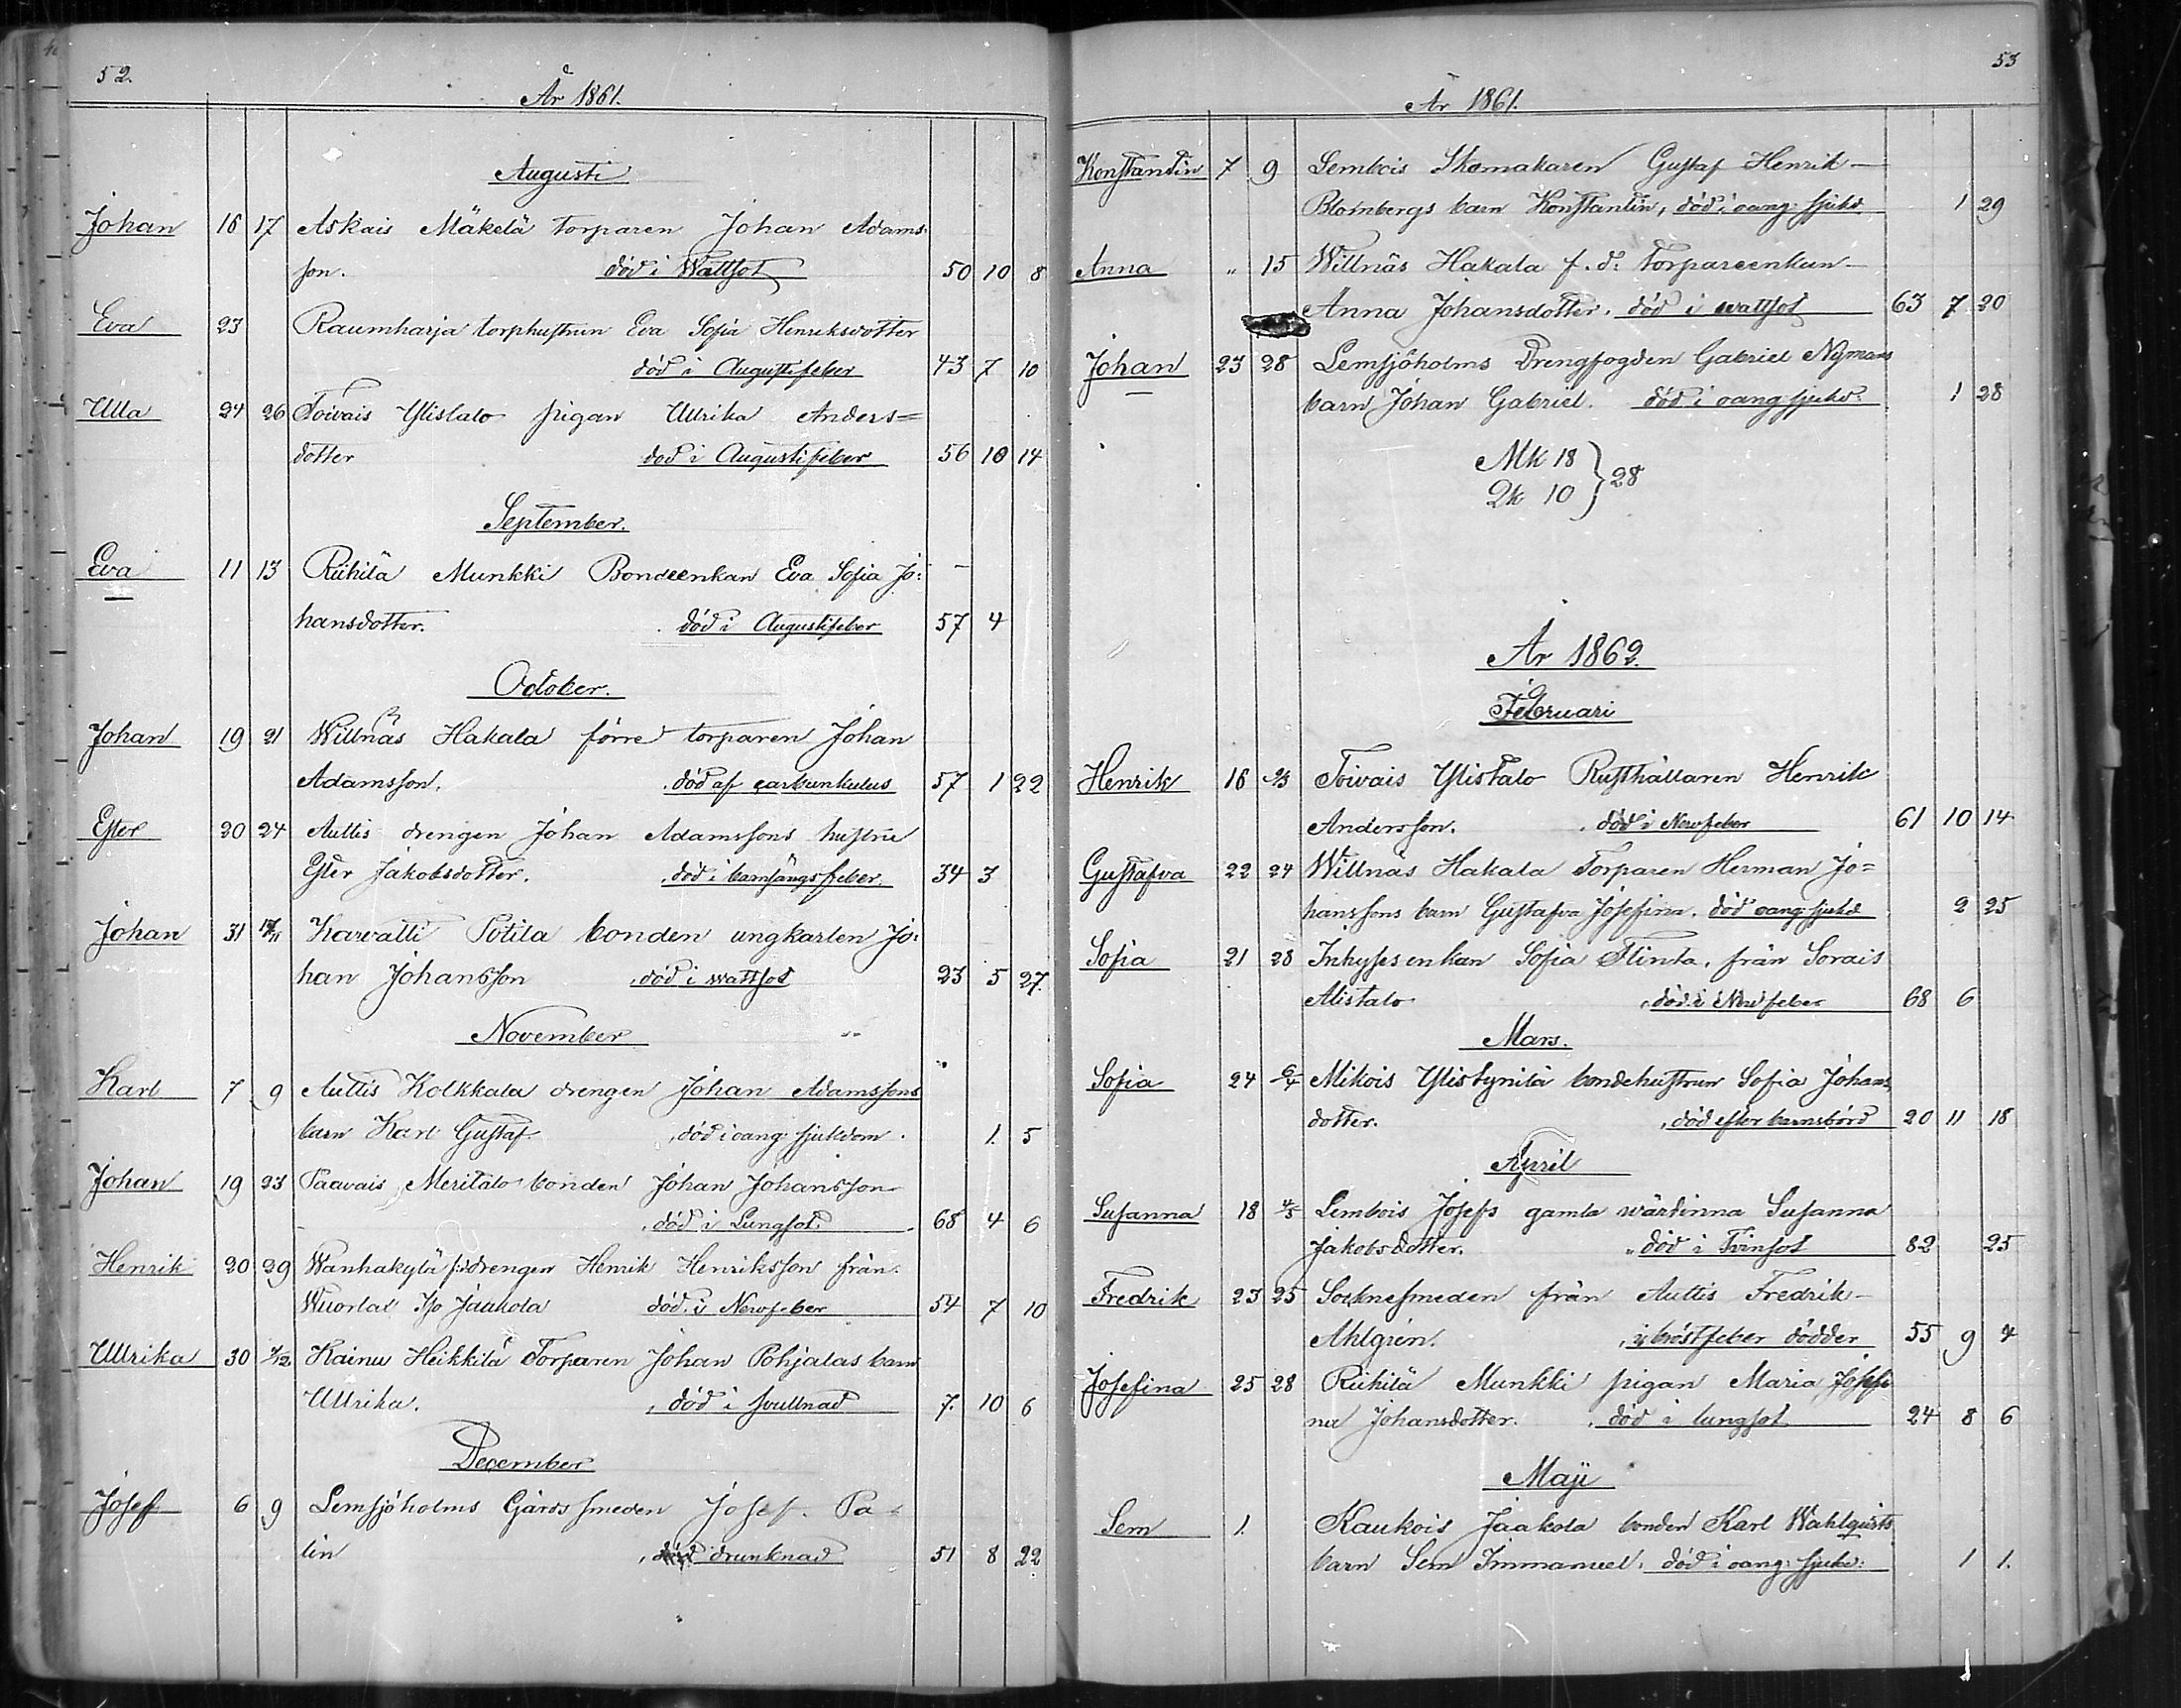 52.
År 1861.
Augusti
Johan 16 17 Askais Mäkelä torparen Johan Adams-
son. död i Wattsot 50 10 8
Eva 23 Raumharja torphustrun Eva Sofia Henriksdotter
död i Augustifeber 43 7 10
Ulla 24 26 Toivais Ylistalo pigan Ulrika Anders=
dotter död i Augustifeber 56 10 14
September.
Eva 11 13 Riihilä Munkki Bondeenkan Eva Sofia Jo:
hansdotter. död i Augustifeber 57 4
October.
Johan 19 21 Willnäs Hakala förre torparen Johan
Adamsson. död af carbunkulus 57 1 22
Ester 20 24 Auttis drengen Johan Adamssons hustru
Ester Jakobsdotter. död i barnsängsfeber. 34 3
Johan 31 17/11 Karvatti Sotila bonden ungkarlen Jo:
han Johansson död i wattsot 23 5 27.
November
Karl 7 9 Auttis Kolkkala drengen Johan Adamssons
barn Karl Gustaf. död i oang: sjukdom. 1. 5
Johan 19 23 Paavais Meritalo bonden Johan Johansson
död i Lungsot. 68 4 6
Henrik 20 29 Wanhakylä f:d drengen Henrik Henriksson från
Wuorlax Iso Jaakola död i Nervfeber 54 7 10
Ullrika 30 2/12 Kainu Heikkilä Torparen Johan Pohjalas barn
Ullrika. död i svullnad 7. 10 6
December
Josef 6 9 Lemsjöholms Gårdssmeden Josef Pa-
lin drunknad 51 8 22
53
År 1861.
Konstantin 7 9 Lembois Skomakaren Gustaf Henrik
Blombergs barn Konstantin, död i oang: sjukd 1 29
Anna " 15 Willnäs Hakala f. d: Torpareenkan
Anna Johansdotter. död i wattsot 63 7 20
Johan 23 28 Lemsjöholms Drengfogden Gabriel Nymans
barn Johan Gabriel. död i oang sjukd 1 28
Mk 18
Qk 10 } 28
År 1862.
Februari
Henrik 16 23 Toivais Ylistalo Rusthållaren Henrik
Andersson. död i Nervfeber 61 10 14
Gustafva 22 24 Willnäs Hakala Torparen Herman Jo=
hanssons barn Gustafva Josefina. död oang: sjukd 2 25
Sofia 21 28 Inhyses enkan Sofia Flinta, från Sorais
Alistalo död i Nervfeber 68 6
Mars.
Sofia 24 6/4 Mikois Ylistynilä bondehustrun Sofia Johans
dotter. död efter barnsbörd 20 11 18
April
Susanna 18 4/5 Lembois Josefs gamla wärdinna Susanna
Jakobsdotter. död i Tvinsot 82 25
Fredrik 23 25 Socknesmeden från Auttis Fredrik
Ahlgrén. i bröstfeber dödder 55 9 4
Josefina 25 28 Riihilä Munkki pigan Maria Josefi
na Johansdotter. död i lungsot 24 8 6
Maji
Sem 1. Kaukois Jaakola bonden Karl Wahlqvists
barn Sem Immanuel. död i oang: sjukd: 1 1.